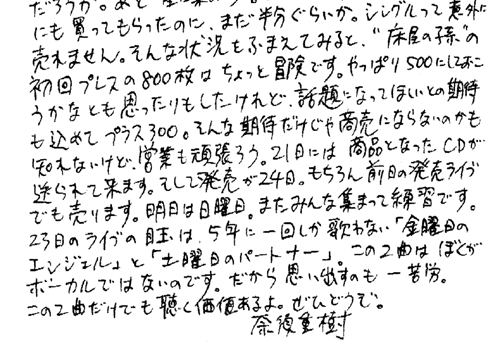 だろうか。あと
にも買ってもらったのに、まだ半分ぐらいか。シングルって意外に
売れません。そんな状況をふまえてみると、"床屋の孫"の
初回プレスの800枚はちょっと冒険です。やっぱり500にしておこ
うかなとも思ったりもしたけれど、話題になってほしいとの期待
も込めてプラス300。そんな期待だけじゃ商売にならないのかも
知れないけど、営業も頑張ろう。21日には商品となったCDが
送られて来ます。そして発売が24日。もちろん前日の発売ライブ
でも売ります。明日は日曜日。またみんな集まって練習です。
23日のライブの目玉は、5年に一回しか歌わない「金曜日の
エンジェル」と「土曜日のパートナー」。この2曲はぼくが
ボーカルではないのです。だから思い出すのも一苦労。
この2曲だけでも聴く価値あるよ。ぜひどうぞ。
奈良重樹